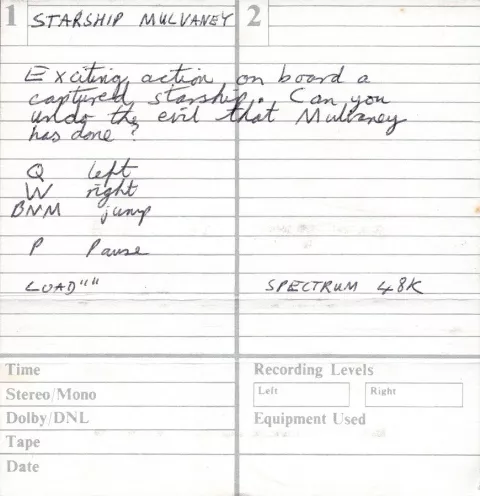 1 STARSHIP MULVANEY 2
Exciting action on board a
captured starship. Can you
undo the evil that Mulvaney
has done?
Q left
W right
BNM jump
P Pause
LOAD"" SPECTRUM 48K
Time Recording Levels
Stereo/Mono Left Right
Dolby/DNL Equipment Used
Tape
Date